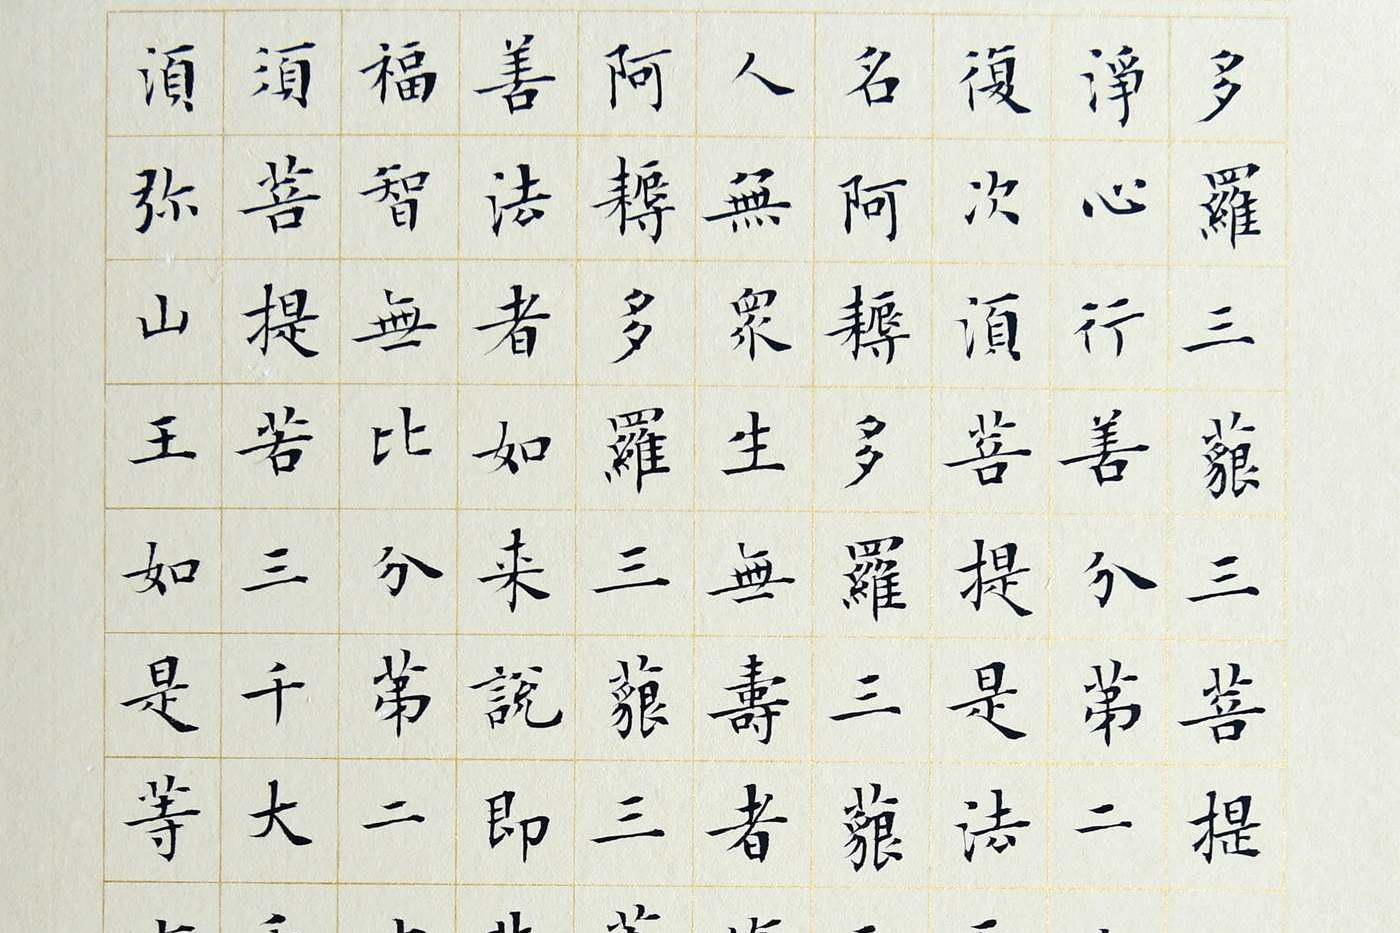 多羅三藐三菩提
淨心行善分第二
復次須菩提是法
名阿耨多羅三藐
人無眾生無壽者
阿耨多羅三藐三
善法者如来說即
福智無比分第二
須菩提若三千大
須弥山王如是等